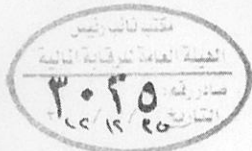 مكتب نائب رئيس
الهيئة العامة للرقابة المالية
صادر رقم: ٣٠٢٥
التاريخ